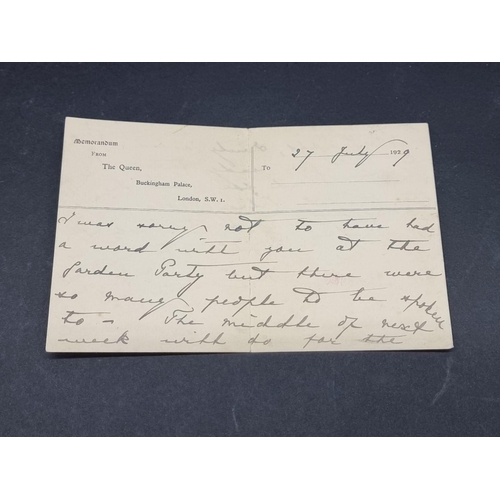 Memorandum
From
The Queen,
Buckingham Palace,
London, S.W.1.
To 27 July 1929
I was sorry not to have had
a word with you at the
Garden Party but there were
so many people to be spoken
to — The middle of next
week will do for the